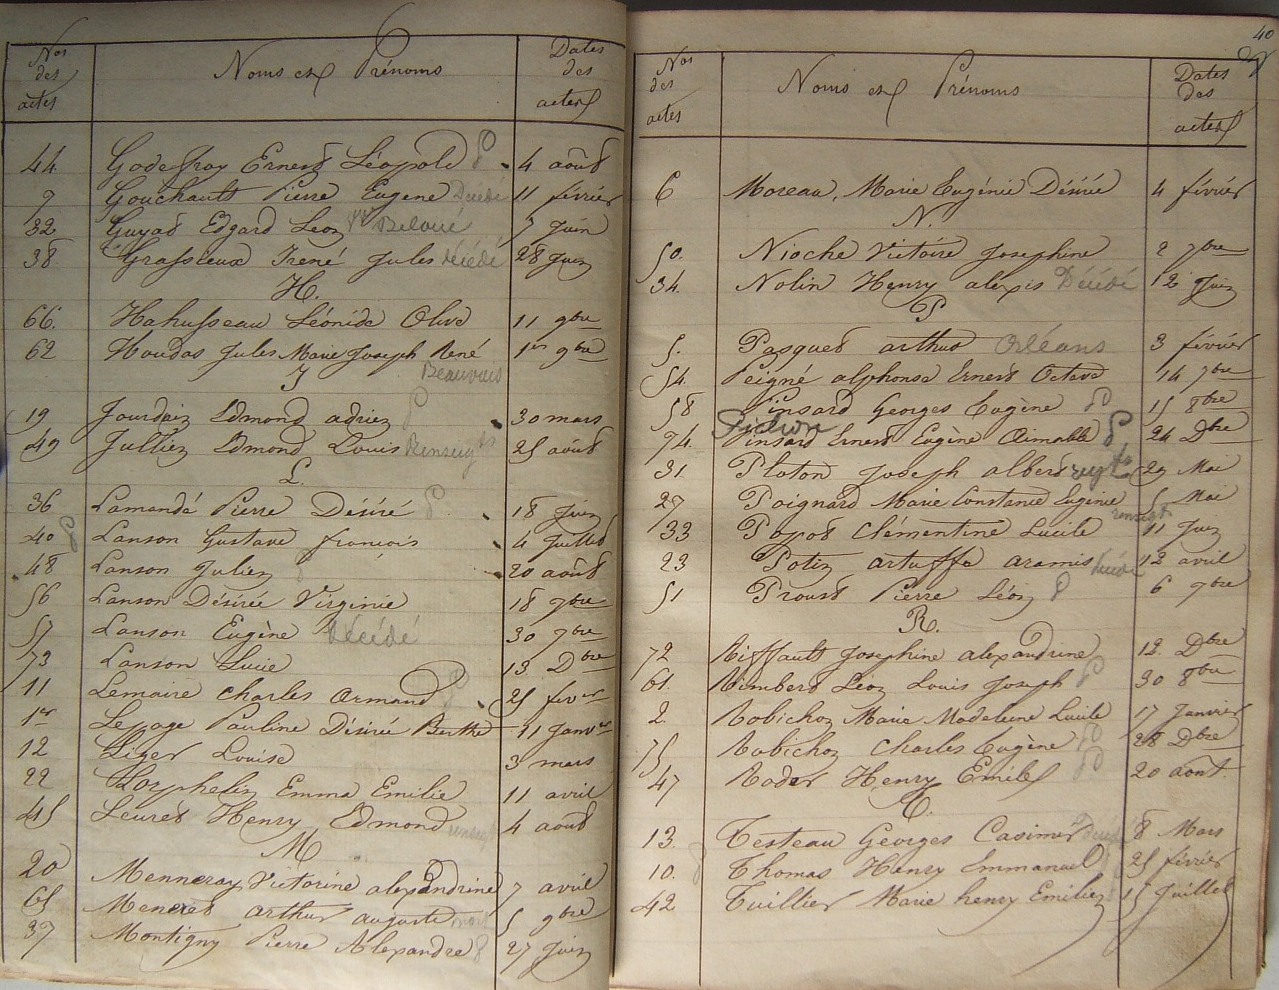 Nos des actes Noms et Prénoms Dates des actes
44. Godeffroy Ernest Léopold 4 août
9 Gouchault Pierre Eugene Décédé 11 février
32 Guyad Edgard Leon 7 juin
38 Grassieux Irené Jules décédé 28 Juin
H.
66. Hahusseau Léonide Olive 11 9bre
62 Houdas Jules Marie Joseph René 1er 9bre
Beauvais
J
19 Jourdain Edmond adrien 30 mars
49 Jullien Edmond Louis Renseigts 25 août
L.
36 Lamandé Pierre Désiré 18 Juin
40 Lanson Gustave francois 4 Juillet
48 Lanson Julien 20 août
56 Lanson Désirée Virginie 18 7bre
57 Lanson Eugène décédé 30 7bre
73 Lanson Lucie 13 Dbre
11 Lemaire Charles Armand 25 fivier
1er Lepage Pauline Désiré Berthe 11 Janvier
12 Liger Louise 3 mars
22 Lorphelin Emma Emilie 11 avril
45 Leuret Henry Edmond 4 août
M
20 Menneray Victorine alexandrine 7 avril
65 Meneret arthur auguste 5 9bre
37 Montigny Pierre Alexandre 27 Juin
40
Nos des actes Noms et Prénoms Dates des actes
6 Moreau, Marie Eugénie Désirée 4 février
N.
50. Nioche Victoire Josephine 2 7bre
34. Nolin Henry alexis Décédé 12 Juin
P
5. Pasques arthur Orléans 3 février
54. Peigné alphonse Ernest Octave 14 7bre
58 Pinsard Georges Eugène 15 8bre
74. Pinsard Ernest Eugène Aimable 24 Dbre
31 Ploton Joseph albert 29 Mai
27 Poignard Marie Constance Eugénie 5 Mai
33 Popot Clémentine Lucile 11 Juin
23 Potin artuffe aramis décédé 12 avril
51 Proust Pierre Léon 6 7bre
R.
72 Riffault Josephine alexandrine 12. Dbre
61. Rimbert Léon Louis Joseph 30 8bre
2. Robichon Marie Madeleine Lucile 17 Janvier
75 Robichon Charles Eugène 28 Dbre
47 Roder Henry Emile 20 aout
T.
13. Testeau Georges Casimir 8 Mars
10. Thomas Henry Emmanuel 25 février
42 Tuillier Marie henry Emilien 15 Juillet